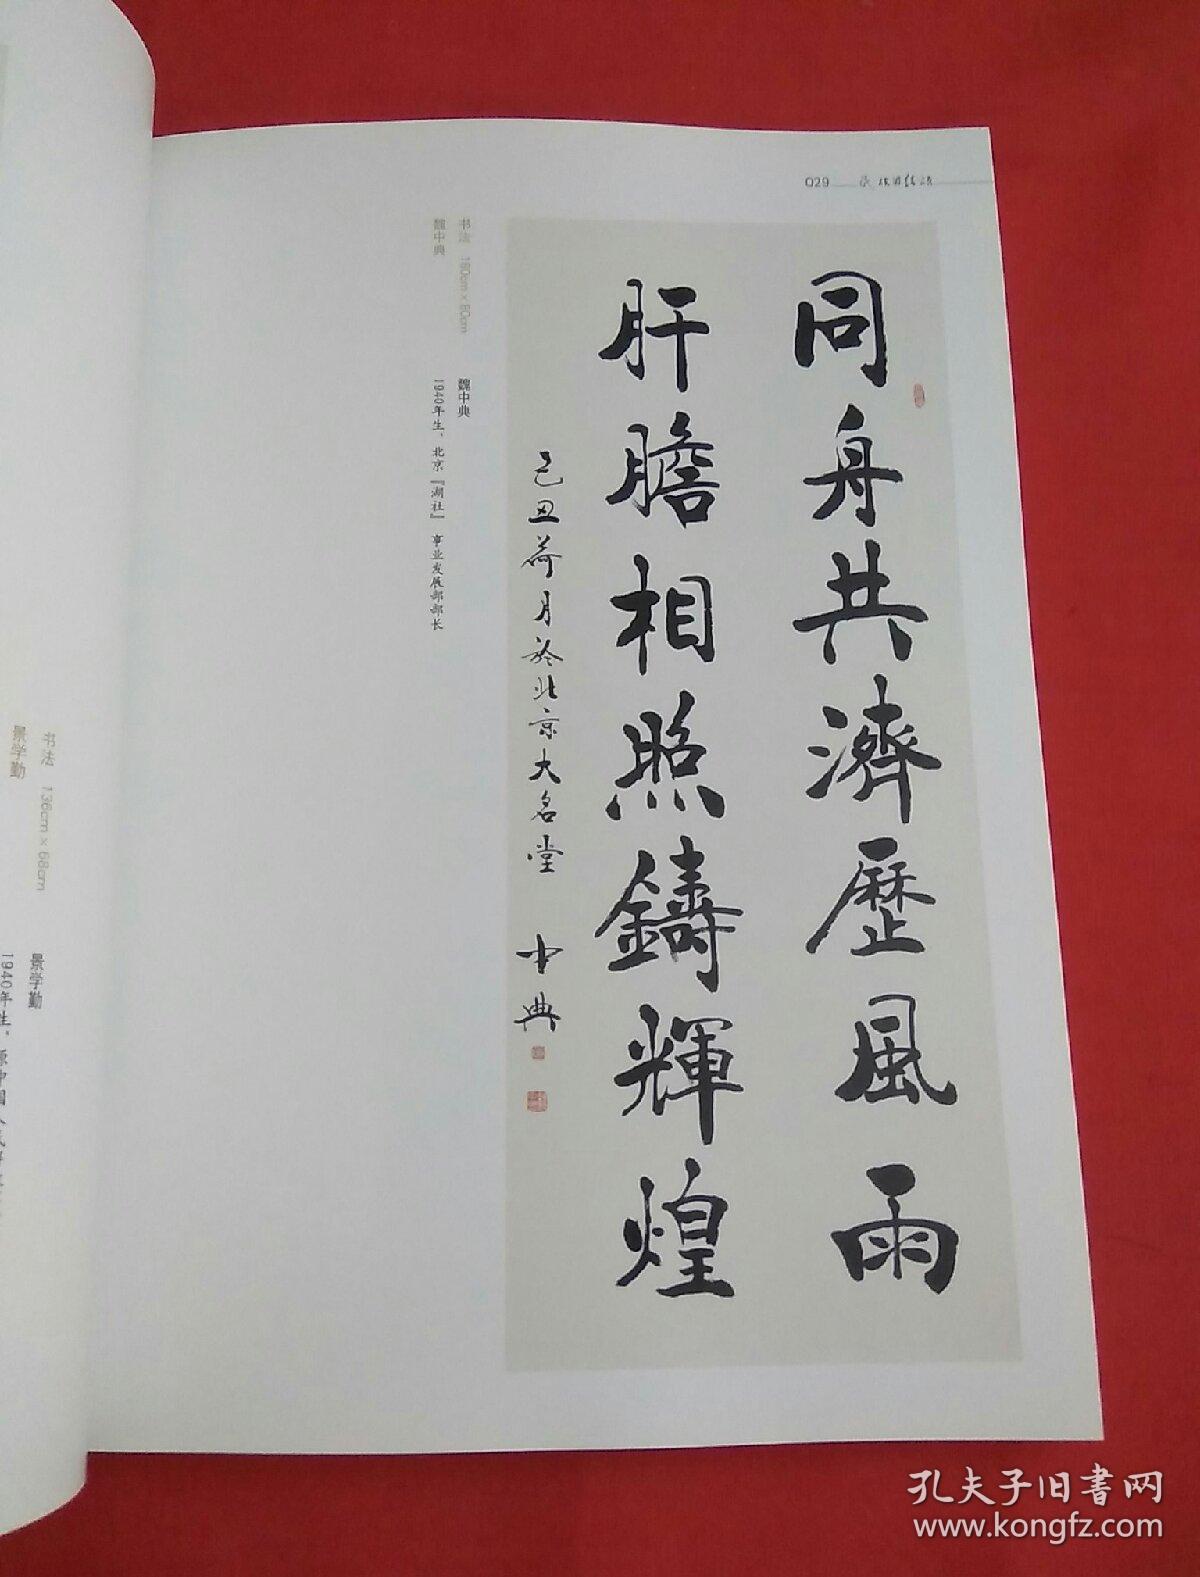 029
同舟共濟歷風雨
肝膽相照鑄輝煌
己丑荷月於北京大名堂 中典
书法 180cm×80cm
魏中典
魏中典
1940年生，北京『湖社』事业发展部部长
书法 136cm×68cm
景学勤
景学勤
1940年生，原中国人民
孔夫子旧书网
www.kongfz.com